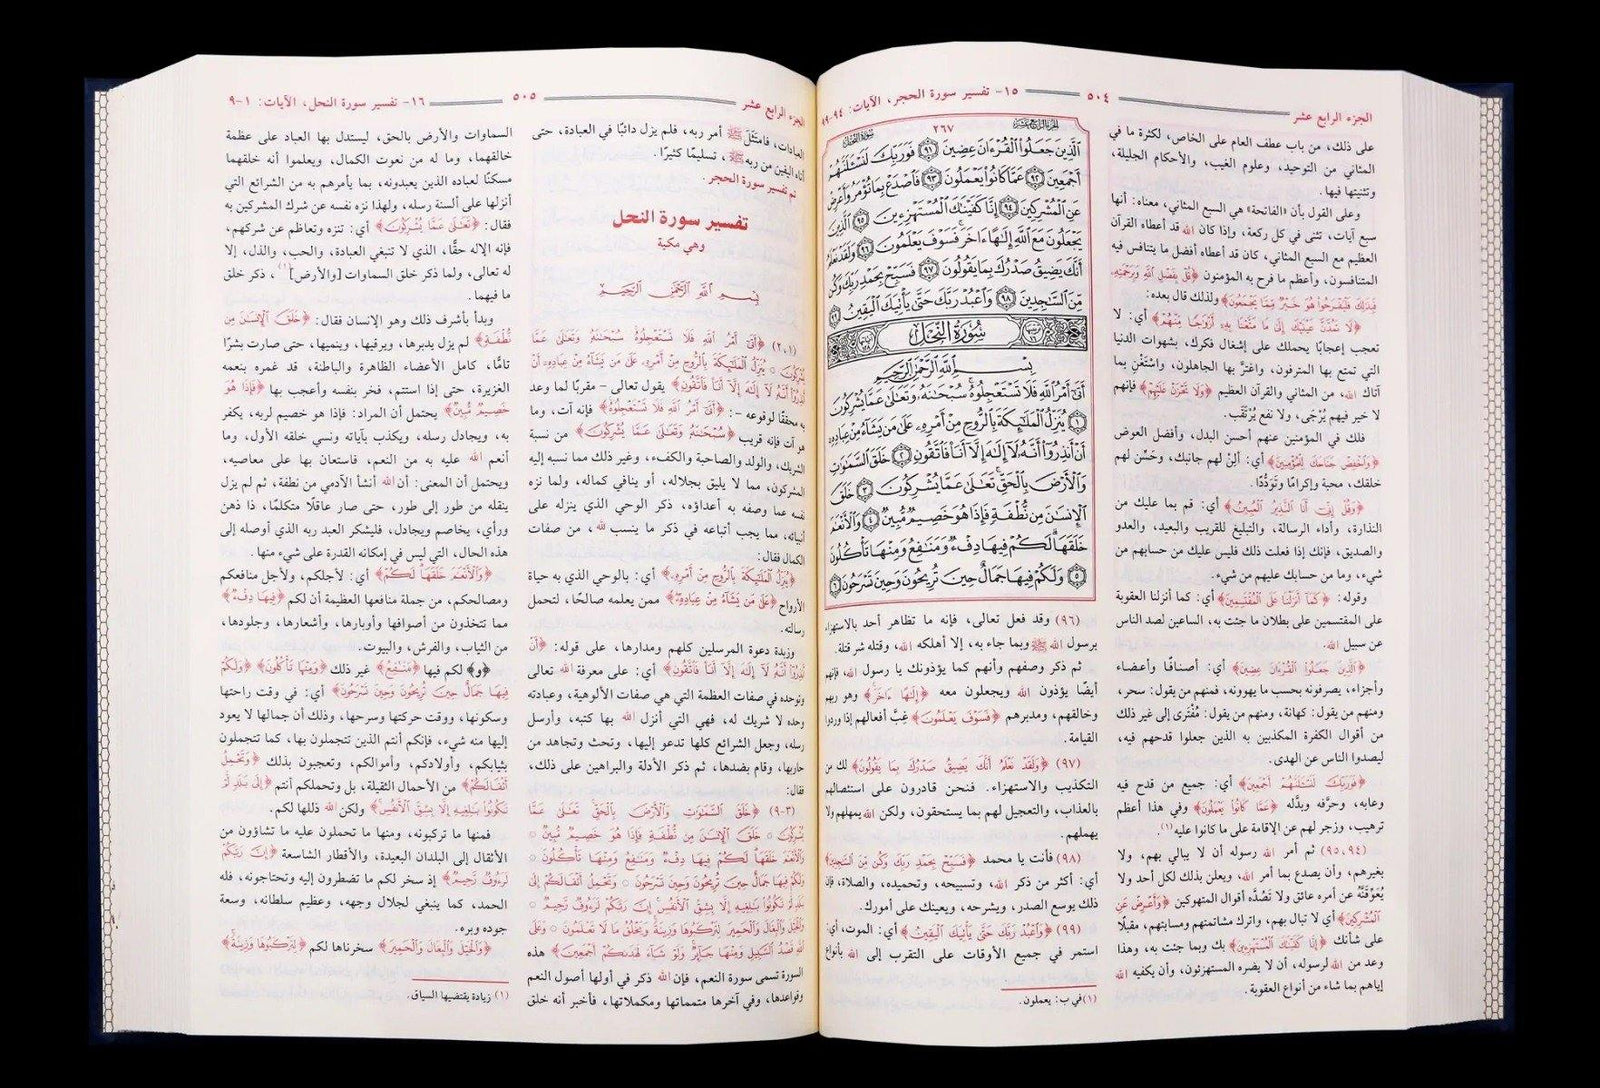 الجزء الرابع عشر ٥٠٤ ١٥- تفسير سورة الحجر، الآيات: ٩٤-٩٩
على ذلك، من باب عطف العام على الخاص، لكثرة ما في
المثاني من التوحيد، وعلوم الغيب، والأحكام الجليلة،
وتثنيتها فيها.
وعلى القول بأن «الفاتحة» هي السبع المثاني، معناه: أنها
سبع آيات، تثنى في كل ركعة، وإذا كان الله قد أعطاه القرآن
العظيم مع السبع المثاني، كان قد أعطاه أفضل ما يتنافس فيه
المتنافسون، وأعظم ما فرح به المؤمنون ﴿قُلْ بِفَضْلِ اللَّهِ وَبِرَحْمَتِهِ
فَبِذَلِكَ فَلْيَفْرَحُوا هُوَ خَيْرٌ مِمَّا يَجْمَعُونَ﴾ ولذلك قال بعده:
﴿لَا تَمُدَّنَّ عَيْنَيْكَ إِلَى مَا مَتَّعْنَا بِهِ أَزْوَاجًا مِنْهُمْ﴾ أي: لا
تعجب إعجابًا يحملك على إشغال فكرك، بشهوات الدنيا
التي تمتع بها المترفون، واغترَّ بها الجاهلون، واستَغْنِ بما
آتاك الله، من المثاني والقرآن العظيم ﴿وَلَا تَحْزَنْ عَلَيْهِمْ﴾ فإنهم
لا خير فيهم يُرْجَى، ولا نفع يُرْتَقَب.
فلك في المؤمنين عنهم أحسن البدل، وأفضل العوض
﴿وَاخْفِضْ جَنَاحَكَ لِلْمُؤْمِنِينَ﴾ أي: ألِنْ لهم جانبك، وحَسِّن لهم
خلقك، محبة وإكرامًا وتَوَدُّدًا.
﴿وَقُلْ إِنِّي أَنَا النَّذِيرُ الْمُبِينُ﴾ أي: قم بما عليك من
النذارة، وأداء الرسالة، والتبليغ للقريب والبعيد، والعدو
والصديق، فإنك إذا فعلت ذلك فليس عليك من حسابهم من
شيء، وما من حسابك عليهم من شيء.
وقوله: ﴿كَمَا أَنْزَلْنَا عَلَى الْمُقْتَسِمِينَ﴾ أي: كما أنزلنا العقوبة
على المقتسمين على بطلان ما جئت به، الساعين لصد الناس
عن سبيل الله.
﴿الَّذِينَ جَعَلُوا الْقُرْآنَ عِضِينَ﴾ أي: أصنافًا وأعضاء
وأجزاء، يصرفونه بحسب ما يهوونه، فمنهم من يقول: سحر،
ومنهم من يقول: كهانة، ومنهم من يقول: مُفْتَرى إلى غير ذلك
من أقوال الكفرة المكذبين به الذين جعلوا قدحهم فيه،
ليصدوا الناس عن الهدى.
﴿فَوَرَبِّكَ لَنَسْأَلَنَّهُمْ أَجْمَعِينَ﴾ أي: جميع من قدح فيه
وعابه، وحرَّفه وبدَّله ﴿عَمَّا كَانُوا يَعْمَلُونَ﴾ وفي هذا أعظم
ترهيب، وزجر لهم عن الإقامة على ما كانوا عليه(١).
(٩٤، ٩٥) ثم أمر الله رسوله أن لا يبالي بهم، ولا
بغيرهم، وأن يصدع بما أمر الله، ويعلن بذلك لكل أحد ولا
يُعَوِّقَنَّهُ عن أمره عائق ولا تَصُدَّه أقوال المتهوكين ﴿وَأَعْرِضْ عَنِ
الْمُشْرِكِينَ﴾ أي لا تبال بهم، واترك مشاتمتهم ومسابتهم، مقبلًا
على شأنك ﴿إِنَّا كَفَيْنَاكَ الْمُسْتَهْزِئِينَ﴾ بك وبما جئت به، وهذا
وعد من الله لرسوله، أن لا يضره المستهزئون، وأن يكفيه الله
إياهم بما شاء من أنواع العقوبة.
الجزء الرابع عشر ٢٦٧ سورة النحل
الَّذِينَ جَعَلُوا الْقُرْآنَ عِضِينَ ٩١ فَوَرَبِّكَ لَنَسْأَلَنَّهُمْ
أَجْمَعِينَ ٩٢ عَمَّا كَانُوا يَعْمَلُونَ ٩٣ فَاصْدَعْ بِمَا تُؤْمَرُ وَأَعْرِضْ
عَنِ الْمُشْرِكِينَ ٩٤ إِنَّا كَفَيْنَاكَ الْمُسْتَهْزِئِينَ ٩٥ الَّذِينَ
يَجْعَلُونَ مَعَ اللَّهِ إِلَهًا آخَرَ فَسَوْفَ يَعْلَمُونَ ٩٦ وَلَقَدْ نَعْلَمُ
أَنَّكَ يَضِيقُ صَدْرُكَ بِمَا يَقُولُونَ ٩٧ فَسَبِّحْ بِحَمْدِ رَبِّكَ وَكُنْ
مِنَ السَّاجِدِينَ ٩٨ وَاعْبُدْ رَبَّكَ حَتَّى يَأْتِيَكَ الْيَقِينُ ٩٩
سُورَةُ النَّحْلِ
بِسْمِ اللَّهِ الرَّحْمَنِ الرَّحِيمِ
أَتَى أَمْرُ اللَّهِ فَلَا تَسْتَعْجِلُوهُ سُبْحَانَهُ وَتَعَالَى عَمَّا يُشْرِكُونَ
١ يُنَزِّلُ الْمَلَائِكَةَ بِالرُّوحِ مِنْ أَمْرِهِ عَلَى مَنْ يَشَاءُ مِنْ عِبَادِهِ
أَنْ أَنْذِرُوا أَنَّهُ لَا إِلَهَ إِلَّا أَنَا فَاتَّقُونِ ٢ خَلَقَ السَّمَاوَاتِ
وَالْأَرْضَ بِالْحَقِّ تَعَالَى عَمَّا يُشْرِكُونَ ٣ خَلَقَ
الْإِنْسَانَ مِنْ نُطْفَةٍ فَإِذَا هُوَ خَصِيمٌ مُبِينٌ ٤ وَالْأَنْعَامَ
خَلَقَهَا لَكُمْ فِيهَا دِفْءٌ وَمَنَافِعُ وَمِنْهَا تَأْكُلُونَ
٥ وَلَكُمْ فِيهَا جَمَالٌ حِينَ تُرِيحُونَ وَحِينَ تَسْرَحُونَ ٦
(٩٦) وقد فعل تعالى، فإنه ما تظاهر أحد بالاستهزاء
برسول الله ﷺ وبما جاء به، إلا أهلكه الله، وقتله شر قتلة.
ثم ذكر وصفهم وأنهم كما يؤذونك يا رسول الله، فإنهم
أيضًا يؤذون الله ويجعلون معه ﴿إِلَهًا آخَرَ﴾ وهو ربهم
وخالقهم، ومدبرهم ﴿فَسَوْفَ يَعْلَمُونَ﴾ غِبَّ أفعالهم إذا وردوا
القيامة.
(٩٧) ﴿وَلَقَدْ نَعْلَمُ أَنَّكَ يَضِيقُ صَدْرُكَ بِمَا يَقُولُونَ﴾ لك من
التكذيب والاستهزاء. فنحن قادرون على استئصالهم
بالعذاب، والتعجيل لهم بما يستحقون، ولكن الله يمهلهم ولا
يهملهم.
(٩٨) فأنت يا محمد ﴿فَسَبِّحْ بِحَمْدِ رَبِّكَ وَكُنْ مِنَ السَّاجِدِينَ﴾
أي: أكثر من ذكر الله، وتسبيحه، وتحميده، والصلاة، فإن
ذلك يوسع الصدر، ويشرحه، ويعينك على أمورك.
(٩٩) ﴿وَاعْبُدْ رَبَّكَ حَتَّى يَأْتِيَكَ الْيَقِينُ﴾ أي: الموت، أي:
استمر في جميع الأوقات على التقرب إلى الله بأنواع
(١) في ب: يعملون.
الجزء الرابع عشر ٥٠٥ ١٦- تفسير سورة النحل، الآيات: ١-٩
العبادات، فامتثل ﷺ أمر ربه، فلم يزل دائبًا في العبادة، حتى
أتاه اليقين من ربه ﷺ، تسليمًا كثيرًا.
تم تفسير سورة الحجر.
تفسير سورة النحل
وهي مكية
بِسْمِ اللَّهِ الرَّحْمَنِ الرَّحِيمِ
(١، ٢) ﴿أَتَى أَمْرُ اللَّهِ فَلَا تَسْتَعْجِلُوهُ سُبْحَانَهُ وَتَعَالَى عَمَّا
يُشْرِكُونَ ۞ يُنَزِّلُ الْمَلَائِكَةَ بِالرُّوحِ مِنْ أَمْرِهِ عَلَى مَنْ يَشَاءُ مِنْ عِبَادِهِ أَنْ
أَنْذِرُوا أَنَّهُ لَا إِلَهَ إِلَّا أَنَا فَاتَّقُونِ﴾ يقول تعالى - مقربًا لما وعد
به محققًا لوقوعه -: ﴿أَتَى أَمْرُ اللَّهِ فَلَا تَسْتَعْجِلُوهُ﴾ فإنه آت، وما
هو آت فإنه قريب ﴿سُبْحَانَهُ وَتَعَالَى عَمَّا يُشْرِكُونَ﴾ من نسبة
الشريك، والولد والصاحبة والكفء، وغير ذلك مما نسبه إليه
المشركون، مما لا يليق بجلاله، أو ينافي كماله، ولما نزه
نفسه عما وصفه به أعداؤه، ذكر الوحي الذي ينزله على
أنبيائه، مما يجب أتباعه في ذكر ما ينسب لله، من صفات
الكمال فقال:
﴿يُنَزِّلُ الْمَلَائِكَةَ بِالرُّوحِ مِنْ أَمْرِهِ﴾ أي: بالوحي الذي به حياة
الأرواح ﴿عَلَى مَنْ يَشَاءُ مِنْ عِبَادِهِ﴾ ممن يعلمه صالحًا، لتحمل
رسالته.
وزبدة دعوة المرسلين كلهم ومدارها، على قوله: ﴿أَنْ
أَنْذِرُوا أَنَّهُ لَا إِلَهَ إِلَّا أَنَا فَاتَّقُونِ﴾ أي: على معرفة الله تعالى
وتوحده في صفات العظمة التي هي صفات الألوهية، وعبادته
وحده لا شريك له، فهي التي أنزل الله بها كتبه، وأرسل
رسله، وجعل الشرائع كلها تدعو إليها، وتحث وتجاهد من
حاربها، وقام بضدها، ثم ذكر الأدلة والبراهين على ذلك،
فقال:
(٣-٩) ﴿خَلَقَ السَّمَاوَاتِ وَالْأَرْضَ بِالْحَقِّ تَعَالَى عَمَّا
يُشْرِكُونَ ۞ خَلَقَ الْإِنْسَانَ مِنْ نُطْفَةٍ فَإِذَا هُوَ خَصِيمٌ مُبِينٌ ۞
وَالْأَنْعَامَ خَلَقَهَا لَكُمْ فِيهَا دِفْءٌ وَمَنَافِعُ وَمِنْهَا تَأْكُلُونَ ۞
وَلَكُمْ فِيهَا جَمَالٌ حِينَ تُرِيحُونَ وَحِينَ تَسْرَحُونَ ۞ وَتَحْمِلُ أَثْقَالَكُمْ إِلَى
بَلَدٍ لَمْ تَكُونُوا بَالِغِيهِ إِلَّا بِشِقِّ الْأَنْفُسِ إِنَّ رَبَّكُمْ لَرَءُوفٌ رَحِيمٌ ۞
وَالْخَيْلَ وَالْبِغَالَ وَالْحَمِيرَ لِتَرْكَبُوهَا وَزِينَةً وَيَخْلُقُ مَا لَا تَعْلَمُونَ ۞ وَعَلَى
اللَّهِ قَصْدُ السَّبِيلِ وَمِنْهَا جَائِرٌ وَلَوْ شَاءَ لَهَدَاكُمْ أَجْمَعِينَ﴾ هذه
السورة تسمى سورة النعم، فإن الله ذكر في أولها أصول النعم
وقواعدها، وفي آخرها متمماتها ومكملاتها، فأخبر أنه خلق
السماوات والأرض بالحق، ليستدل بها العباد على عظمة
خالقهما، وما له من نعوت الكمال، ويعلموا أنه خلقهما
مسكنًا لعباده الذين يعبدونه، بما يأمرهم به من الشرائع التي
أنزلها على ألسنة رسله، ولهذا نزه نفسه عن شرك المشركين به
فقال: ﴿تَعَالَى عَمَّا يُشْرِكُونَ﴾ أي: تنزه وتعاظم عن شركهم،
فإنه الإله حقًّا، الذي لا تنبغي العبادة، والحب، والذل، إلا
له تعالى، ولما ذكر خلق السماوات [والأرض](١)، ذكر خلق
ما فيهما.
وبدأ بأشرف ذلك وهو الإنسان فقال: ﴿خَلَقَ الْإِنْسَانَ مِنْ
نُطْفَةٍ﴾ لم يزل يدبرها، ويرقيها، وينميها، حتى صارت بشرًا
تامًّا، كامل الأعضاء الظاهرة والباطنة، قد غمره بنعمه
الغزيرة، حتى إذا استتم، فخر بنفسه وأعجب بها ﴿فَإِذَا هُوَ
خَصِيمٌ مُبِينٌ﴾ يحتمل أن المراد: فإذا هو خصيم لربه، يكفر
به، ويجادل رسله، ويكذب بآياته ونسي خلقه الأول، وما
أنعم الله عليه به من النعم، فاستعان بها على معاصيه،
ويحتمل أن المعنى: أن الله أنشأ الآدمي من نطفة، ثم لم يزل
ينقله من طور إلى طور، حتى صار عاقلًا متكلمًا، ذا ذهن
ورأي، يخاصم ويجادل، فليشكر العبد ربه الذي أوصله إلى
هذه الحال، التي ليس في إمكانه القدرة على شيء منها.
﴿وَالْأَنْعَامَ خَلَقَهَا لَكُمْ﴾ أي: لأجلكم، ولأجل منافعكم
ومصالحكم، من جملة منافعها العظيمة أن لكم ﴿فِيهَا دِفْءٌ﴾
مما تتخذون من أصوافها وأوبارها، وأشعارها، وجلودها،
من الثياب، والفرش، والبيوت.
﴿و﴾ لكم فيها ﴿مَنَافِعُ﴾ غير ذلك ﴿وَمِنْهَا تَأْكُلُونَ﴾ ﴿وَلَكُمْ
فِيهَا جَمَالٌ حِينَ تُرِيحُونَ وَحِينَ تَسْرَحُونَ﴾ أي: في وقت راحتها
وسكونها، ووقت حركتها وسرحها، وذلك أن جمالها لا يعود
إليها منه شيء، فإنكم أنتم الذين تتجملون بها، كما تتجملون
بثيابكم، وأولادكم، وأموالكم، وتعجبون بذلك ﴿وَتَحْمِلُ
أَثْقَالَكُمْ﴾ من الأحمال الثقيلة، بل وتحملكم أنتم ﴿إِلَى بَلَدٍ لَمْ
تَكُونُوا بَالِغِيهِ إِلَّا بِشِقِّ الْأَنْفُسِ﴾ ولكن الله ذللها لكم.
فمنها ما تركبونه، ومنها ما تحملون عليه ما تشاؤون من
الأثقال إلى البلدان البعيدة، والأقطار الشاسعة ﴿إِنَّ رَبَّكُمْ
لَرَءُوفٌ رَحِيمٌ﴾ إذ سخر لكم ما تضطرون إليه وتحتاجونه، فله
الحمد، كما ينبغي لجلال وجهه، وعظيم سلطانه، وسعة
جوده وبره.
﴿وَالْخَيْلَ وَالْبِغَالَ وَالْحَمِيرَ﴾ سخرناها لكم ﴿لِتَرْكَبُوهَا وَزِينَةً﴾
(١) زيادة يقتضيها السياق.